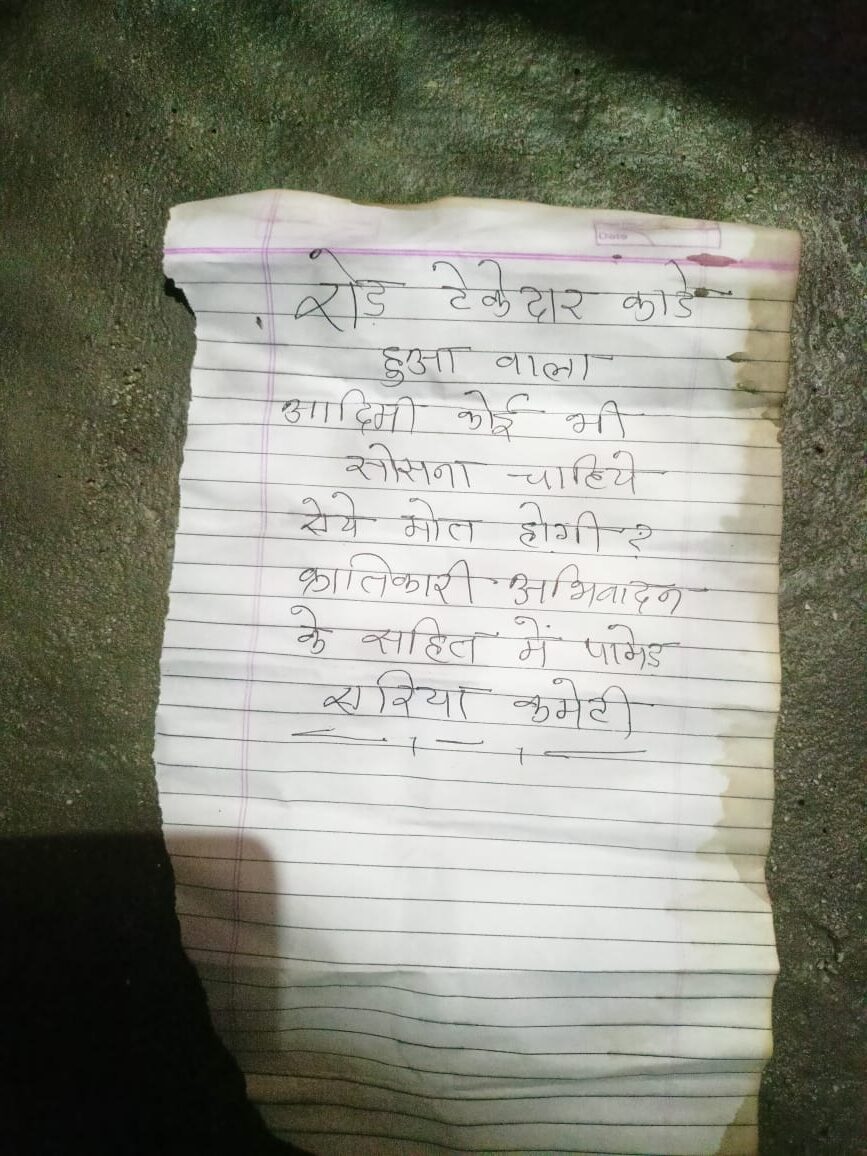 Date
रोड टेकेदार काडे
हुआ वाला
आदिमी कोई भी
सोसना चाहिये
सेये मोत होगी ?
क्रातिकारी अभिवादन
के सहित में पामेड
एरिया कमेटी